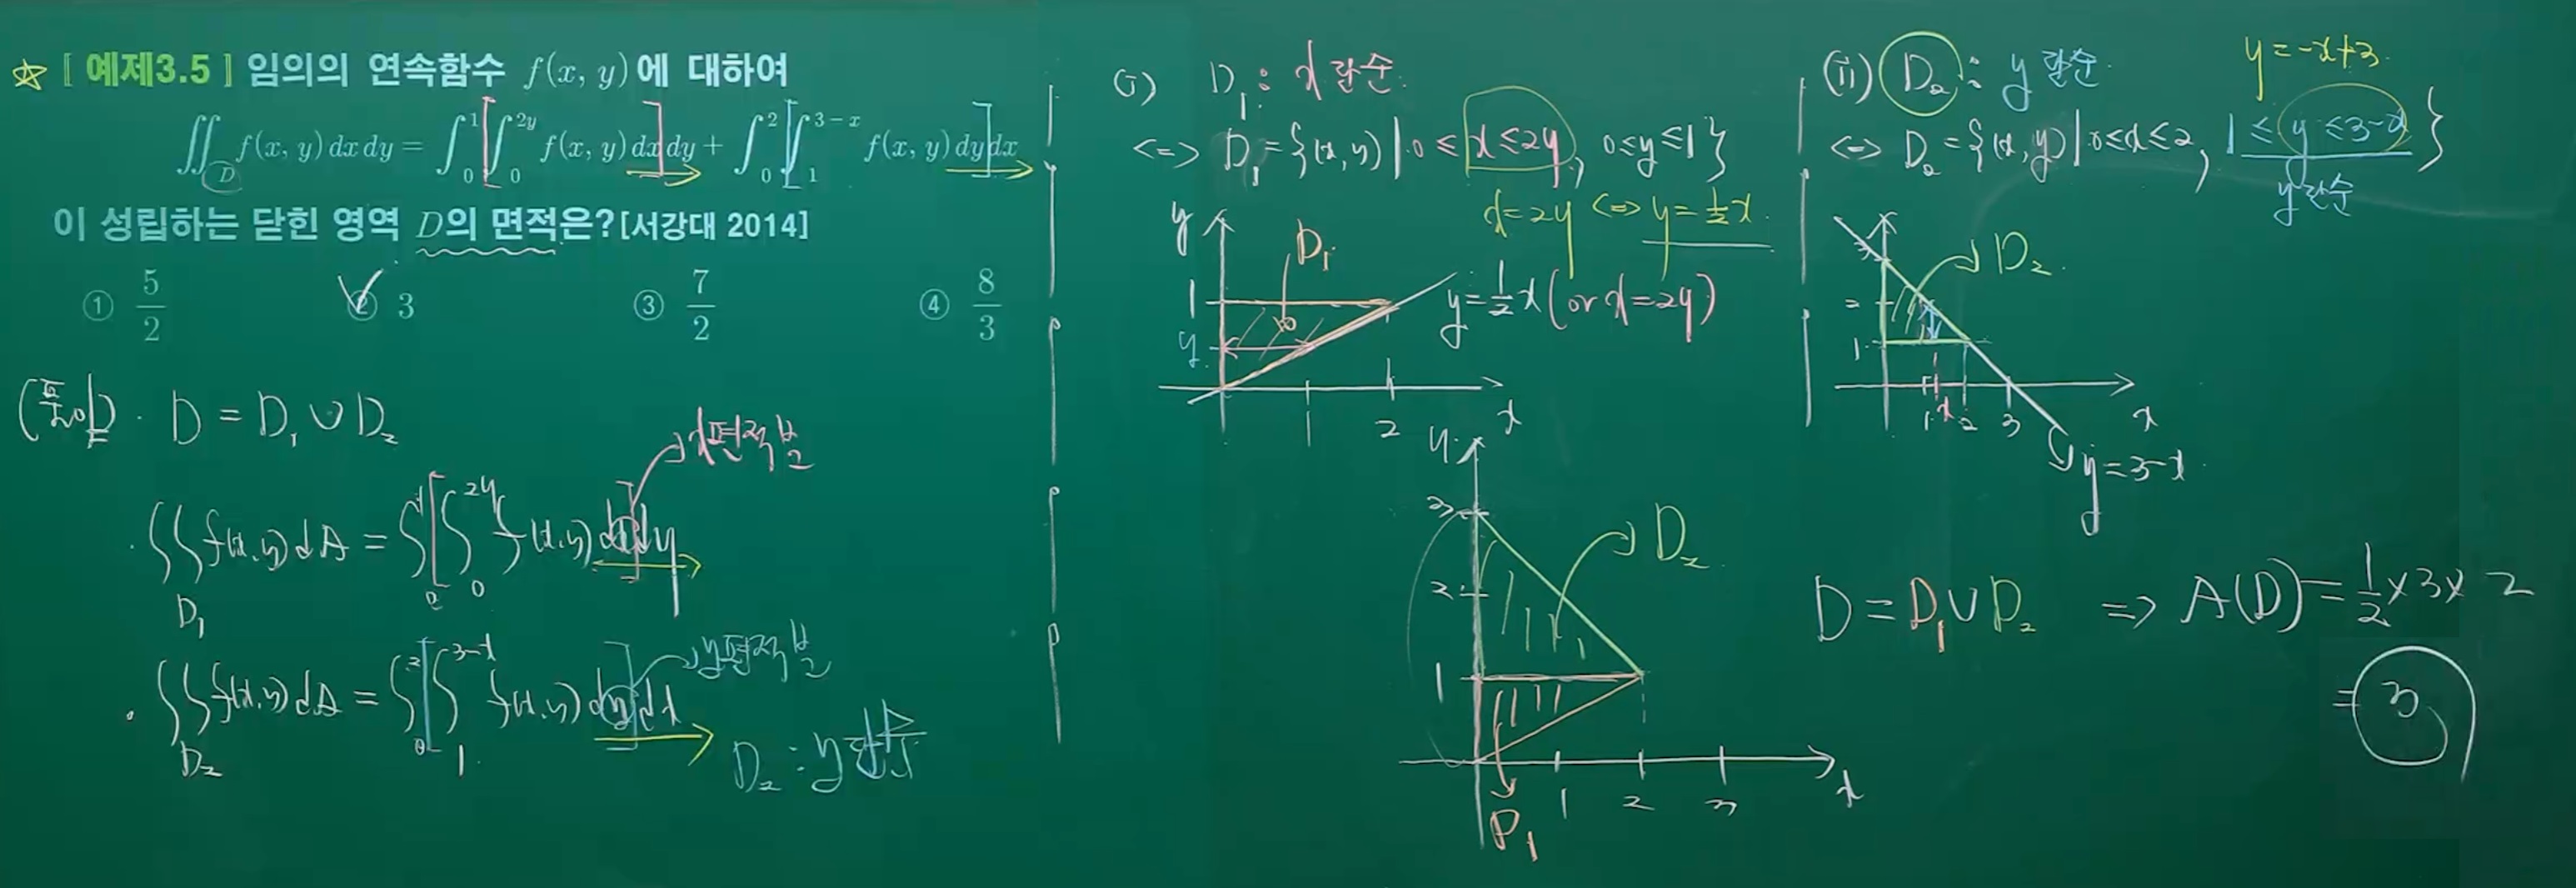 ☆ [ 예제3.5 ] 임의의 연속함수 f(x, y)에 대하여
∬_D f(x, y) dx dy = ∫_0^1 [∫_0^{2y} f(x, y) dx] dy + ∫_0^2 [∫_1^{3-x} f(x, y) dy] dx
이 성립하는 닫힌 영역 D의 면적은? [서강대 2014]
① 5/2 ② 3 ③ 7/2 ④ 8/3
(풀이) · D = D₁ ∪ D₂
x편적분
· ∬_{D₁} f(x,y) dA = ∫_0^1 [∫_0^{2y} f(x,y) dx] dy
y편적분
· ∬_{D₂} f(x,y) dA = ∫_0^2 [∫_1^{3-x} f(x,y) dy] dx
D₂ : y단순
(i) D₁ : x단순.
<=> D₁ = {(x,y) | 0 ≤ x ≤ 2y, 0 ≤ y ≤ 1}
x = 2y <=> y = ½x.
y
D₁
1
y
y = ½x (or x = 2y)
1 2 x
y
3
2
1
D₂
1 2 3 x
D₁
(ii) D₂ : y단순.
y = -x+3.
<=> D₂ = {(x,y) | 0 ≤ x ≤ 2, 1 ≤ y ≤ 3-x}
y단순
3
2
1
D₂
1 x 2 3 x
y = 3-x
D = D₁ ∪ D₂ => A(D) = ½ × 3 × 2
= 3